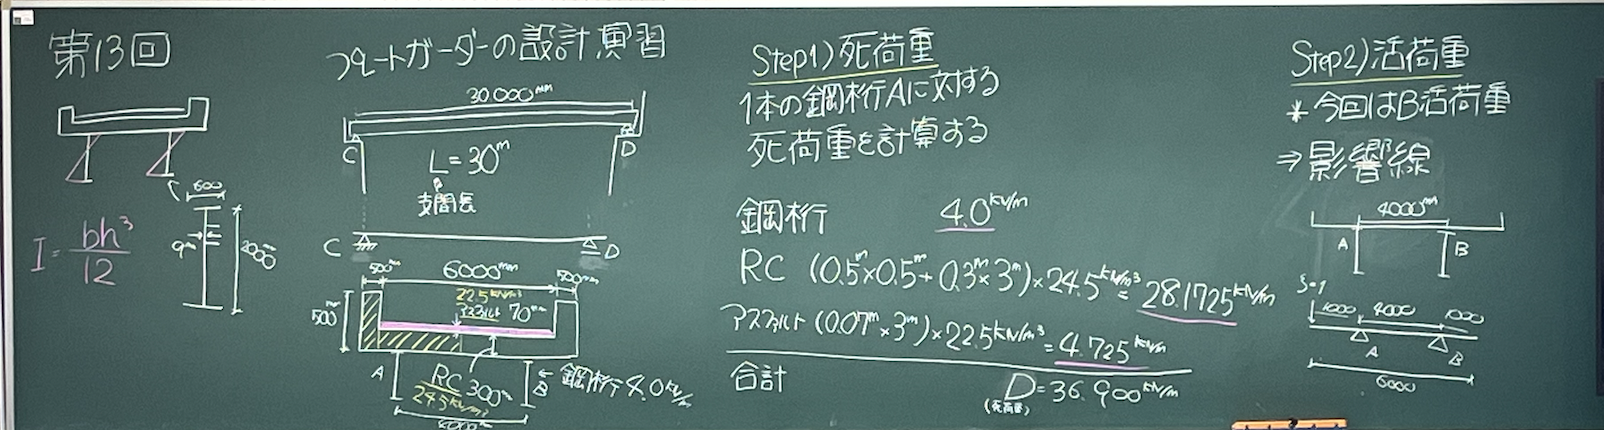 第13回
600
9mm
2000mm
I = bh³/12
プレートガーダーの設計演習
30.000mm
C
D
L=30m
支間長
C
D
500mm
6000mm
500mm
22.5kN/m³
アスファルト 70mm
500mm
A
RC 300mm
24.5kN/m³
B
← 鋼桁 4.0kN/m
4000mm
Step1) 死荷重
1本の鋼桁Aに対する
死荷重を計算する
鋼桁 4.0kN/m
RC (0.5m×0.5m+0.3m×3m)×24.5kN/m³=28.1725kN/m
アスファルト (0.07m×3m)×22.5kN/m³=4.725kN/m
合計 D=36.900kN/m
(死荷重)
Step2) 活荷重
*今回はB活荷重
⇒影響線
4000mm
A
B
1000
4000
1000
A
B
6000